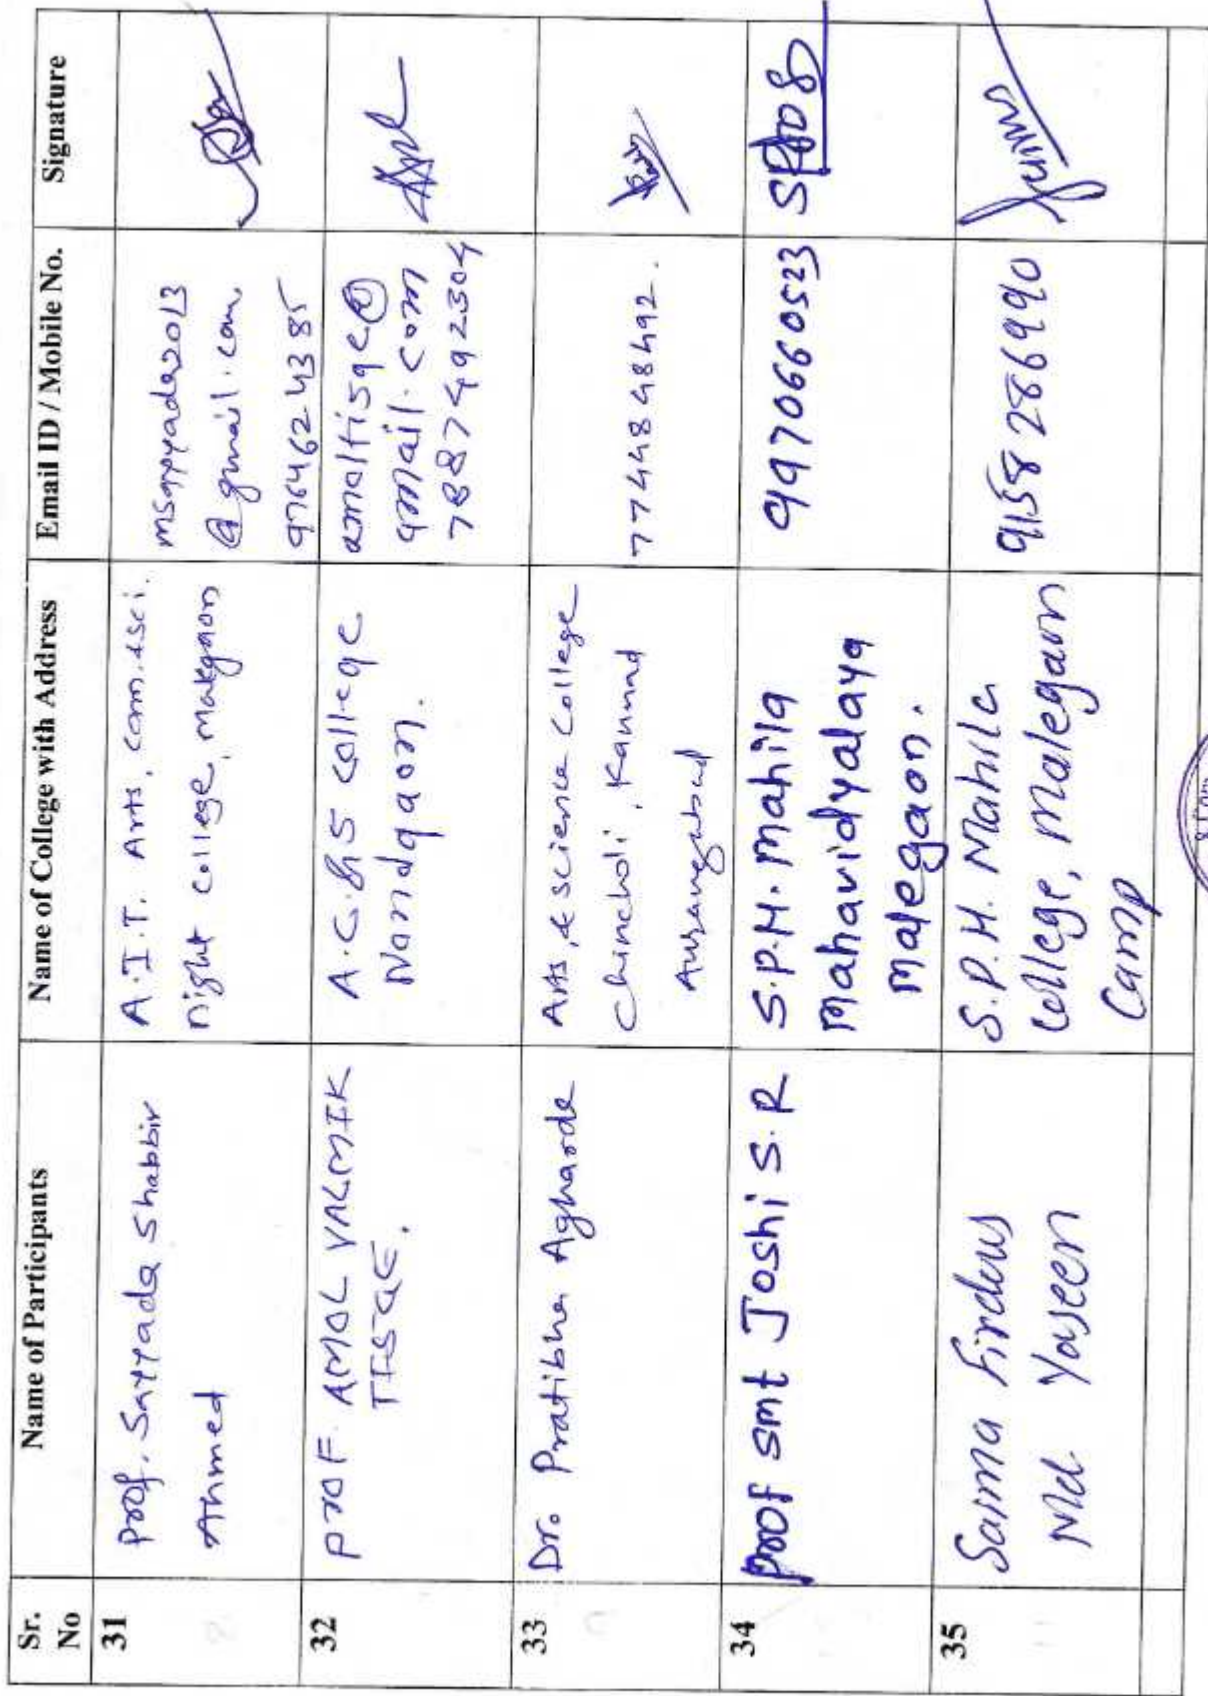 Sr. No
Name of Participants
Name of College with Address
Email ID / Mobile No.
Signature
31
Prof. Sayyada Shabbir
Ahmed
A.I.T. Arts, Com. & Sci.
night College, Malegaon
@gmail.com,
9764624385
32
Prof. AMOL VALMIK
TISGE.
A.C. & S College
Nandgaon.
amoltisge@
gmail.com
7887492304
33
Dr. Pratibha Agharde
Arts, & Science College
Chincholi, Kannad
Aurangabad
7744848492.
34
Prof smt Joshi S.R
S.P.H. Mahila
Mahavidyalaya
Malegaon.
9970660523
35
Saima Firdous
Md. Yaseen
S.P.H. Mahila
College, Malegaon
Camp
9158286990